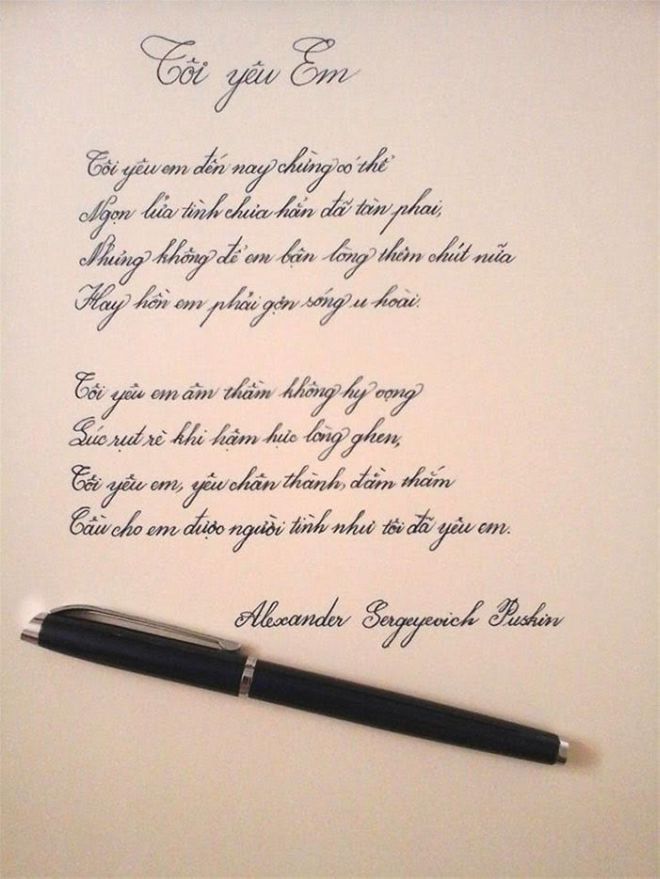 Tôi yêu Em
Tôi yêu em đến nay chừng có thể
Ngọn lửa tình chưa hẳn đã tàn phai,
Nhưng không để em bận lòng thêm chút nữa
Hay hồn em phải gợn sóng u hoài.
Tôi yêu em âm thầm không hy vọng
Lúc rụt rè khi hậm hực lòng ghen,
Tôi yêu em, yêu chân thành, đằm thắm
Cầu cho em được người tình như tôi đã yêu em.
Alexander Sergeyevich Puskin